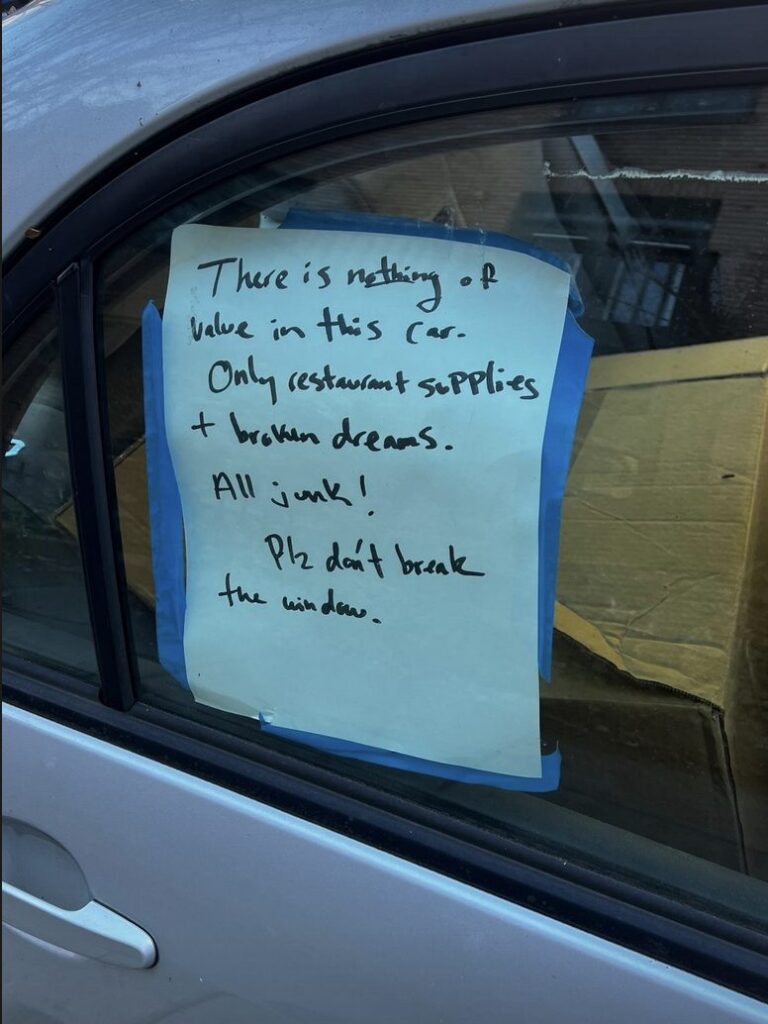 There is nothing of
value in this car.
Only restaurant supplies
+ broken dreams.
All junk!
Plz don't break
the window.